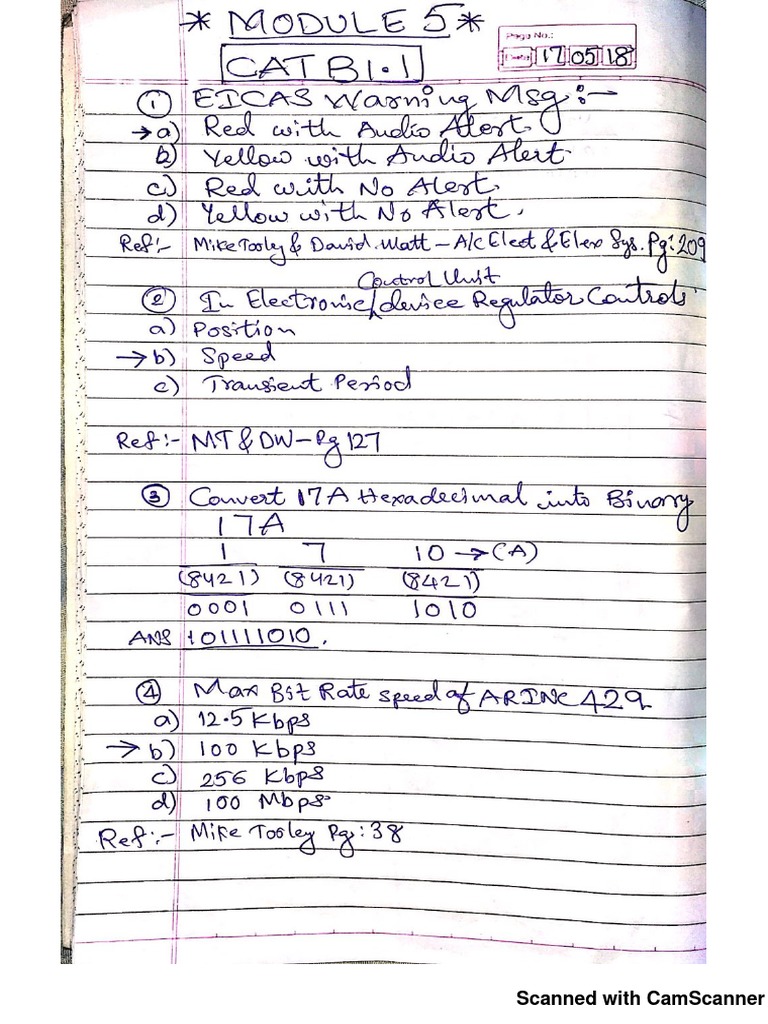 * MODULE 5 *
Page No.:
Date 17 05 18
CAT B1.1
① EICAS Warning Msg :-
→ a) Red with Audio Alert.
b) Yellow with Audio Alert.
c) Red with No Alert.
d) Yellow with No Alert.
Ref:- Mike Tooley & David Watt - A/C Elect & Elex Sys. Pg: 209
Control Unit
② In Electronic device Regulator Controls
a) Position
→ b) Speed
c) Transient Period
Ref:- MT & DW - Pg 127
③ Convert 17A Hexadecimal into Binary
17A
1 7 10 → (A)
(8421) (8421) (8421)
0001 0111 1010
ANS 101111010.
④ Max Bit Rate speed of ARINC 429
a) 12.5 Kbps
→ b) 100 Kbps
c) 256 Kbps
d) 100 Mbps
Ref:- Mike Tooley Pg: 38
Scanned with CamScanner